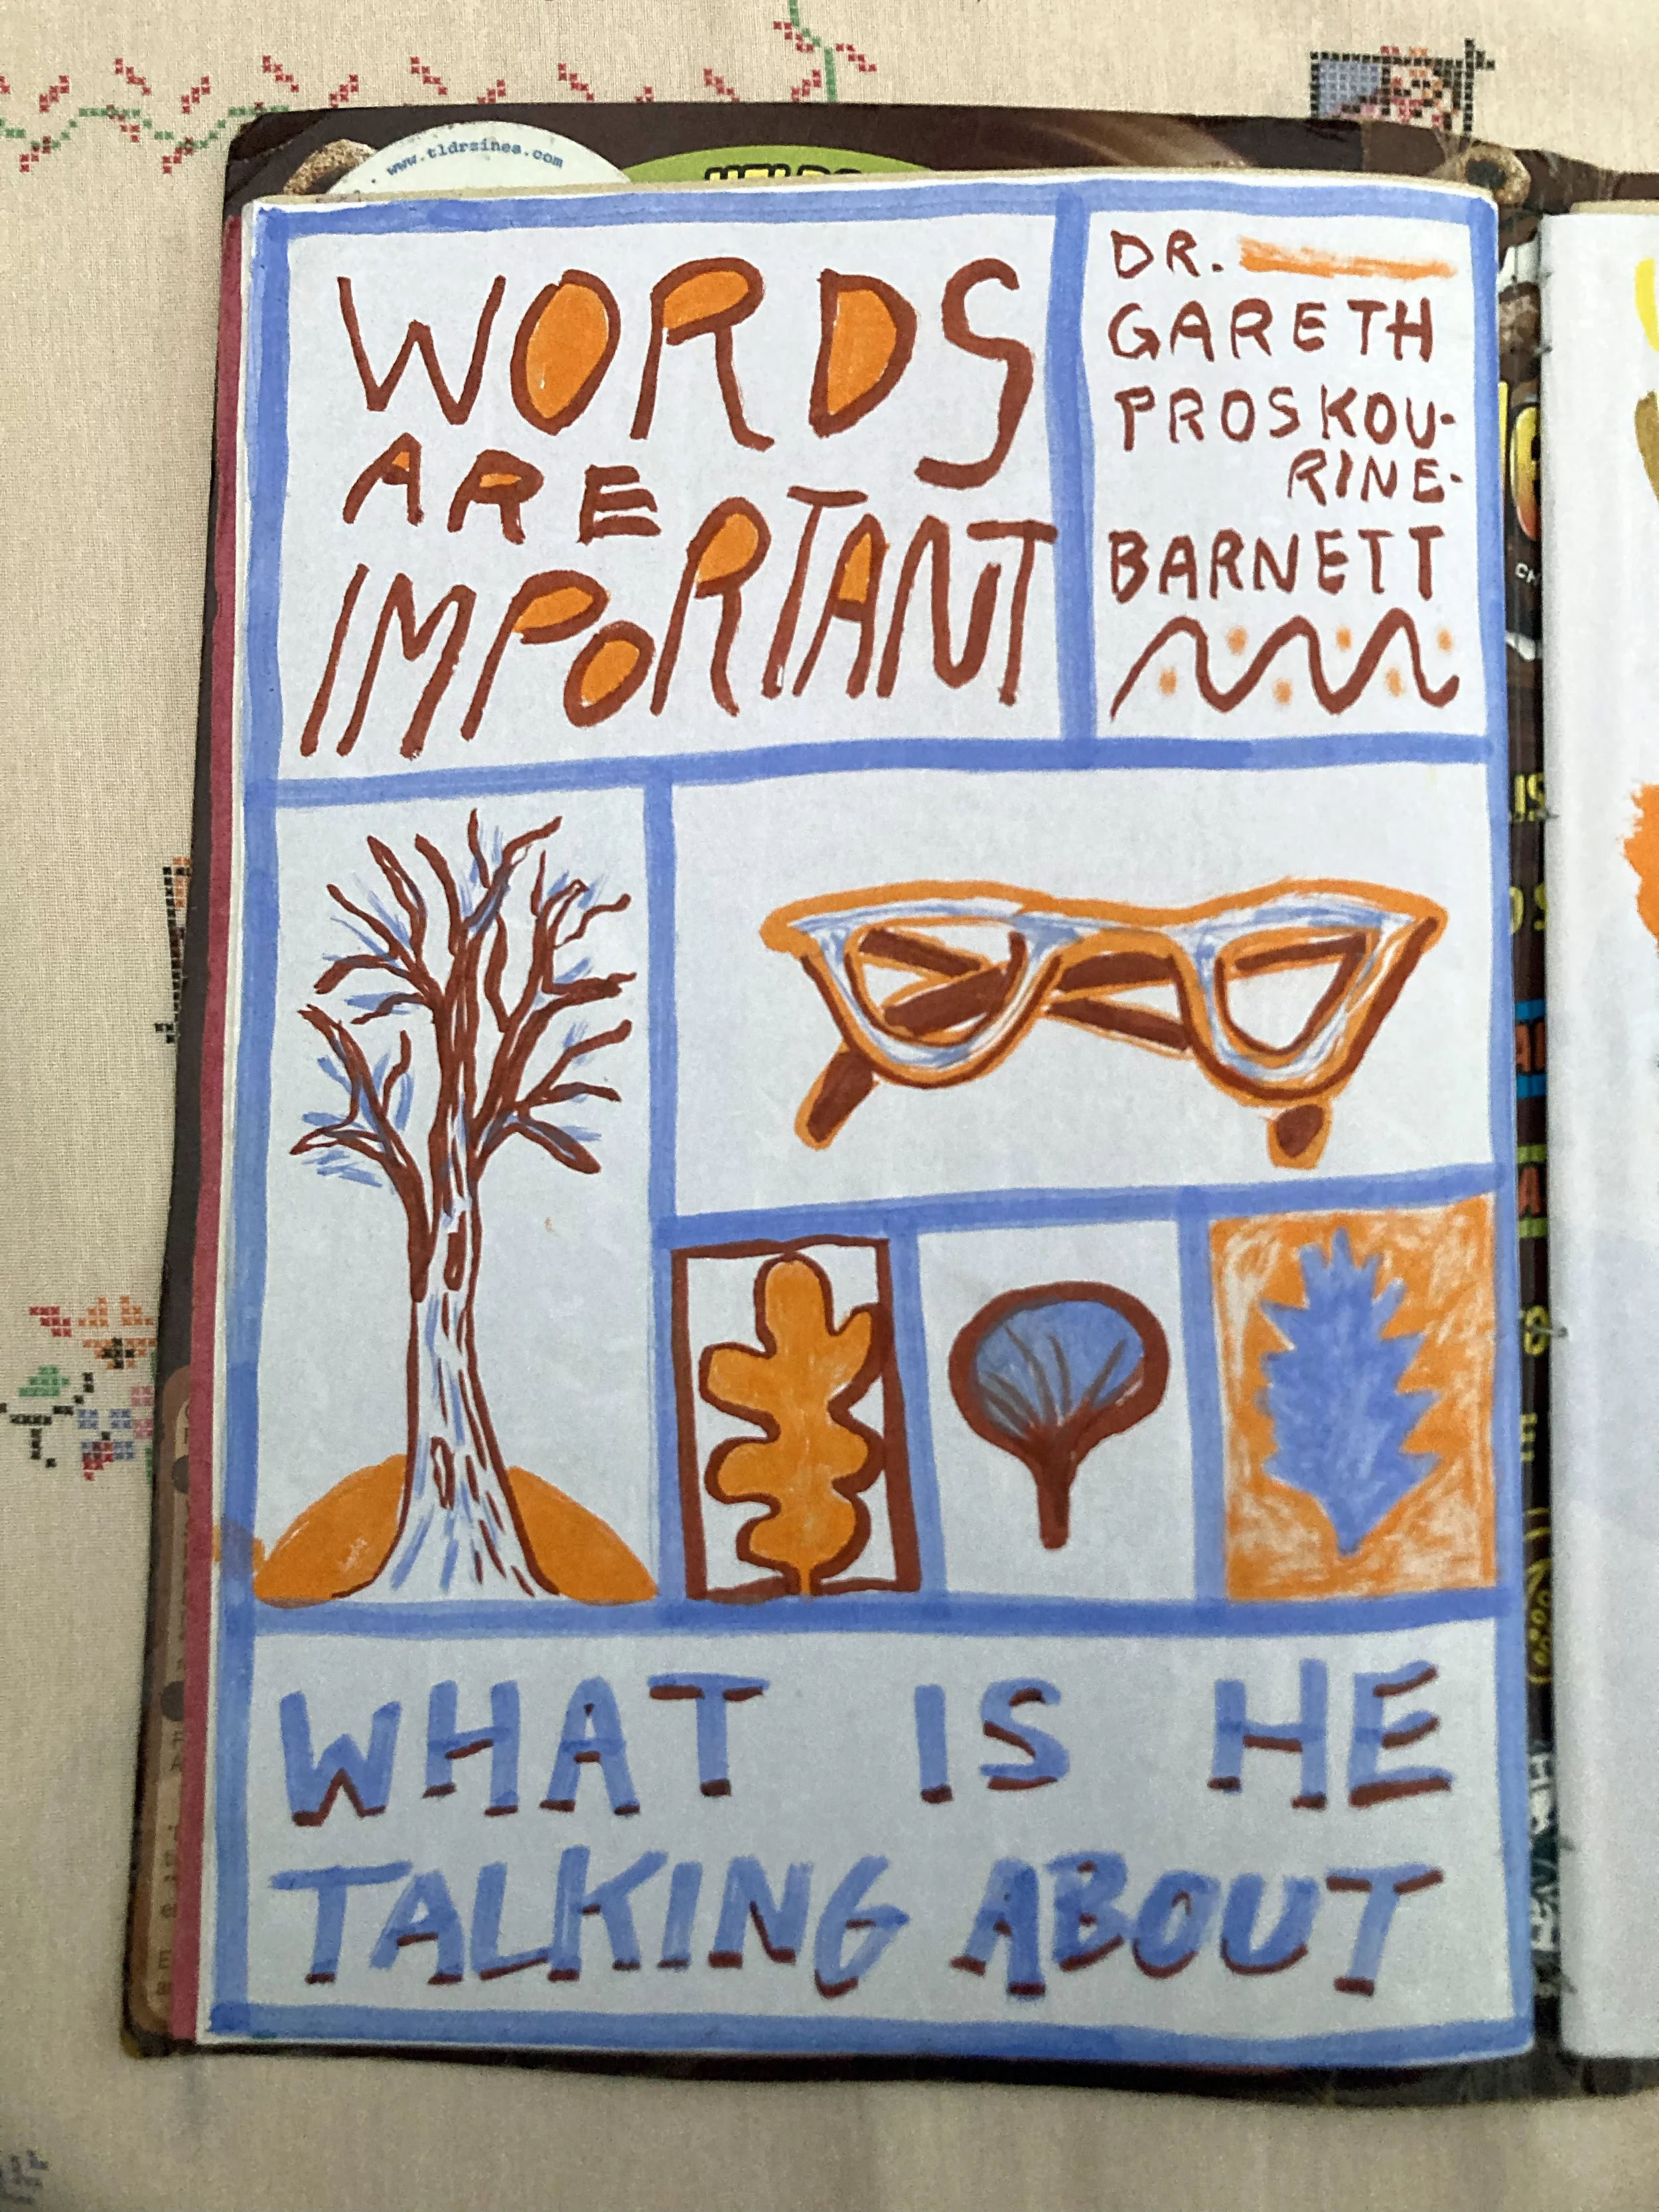 www.tldrzines.com
WORDS
ARE
IMPORTANT
DR.
GARETH
PROSKOU-
RINE-
BARNETT
WHAT IS HE
TALKING ABOUT